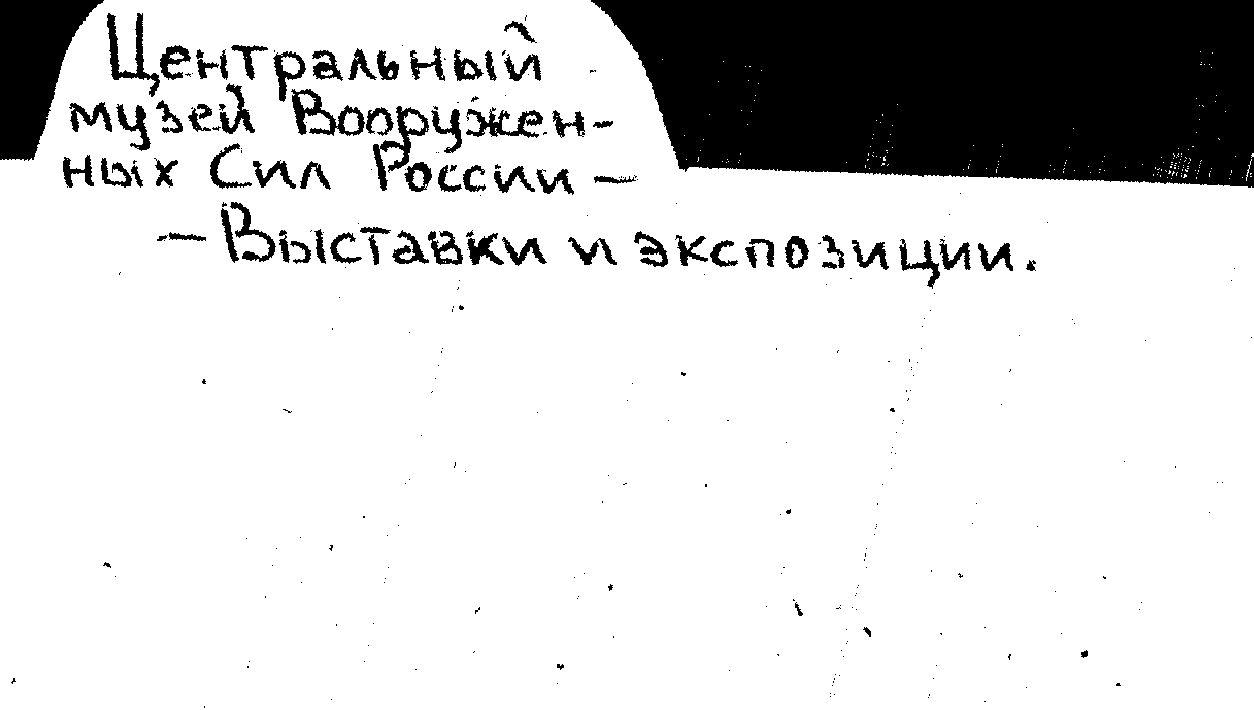 Центральный
музей Вооружен-
ных Сил России –
– Выставки и экспозиции.